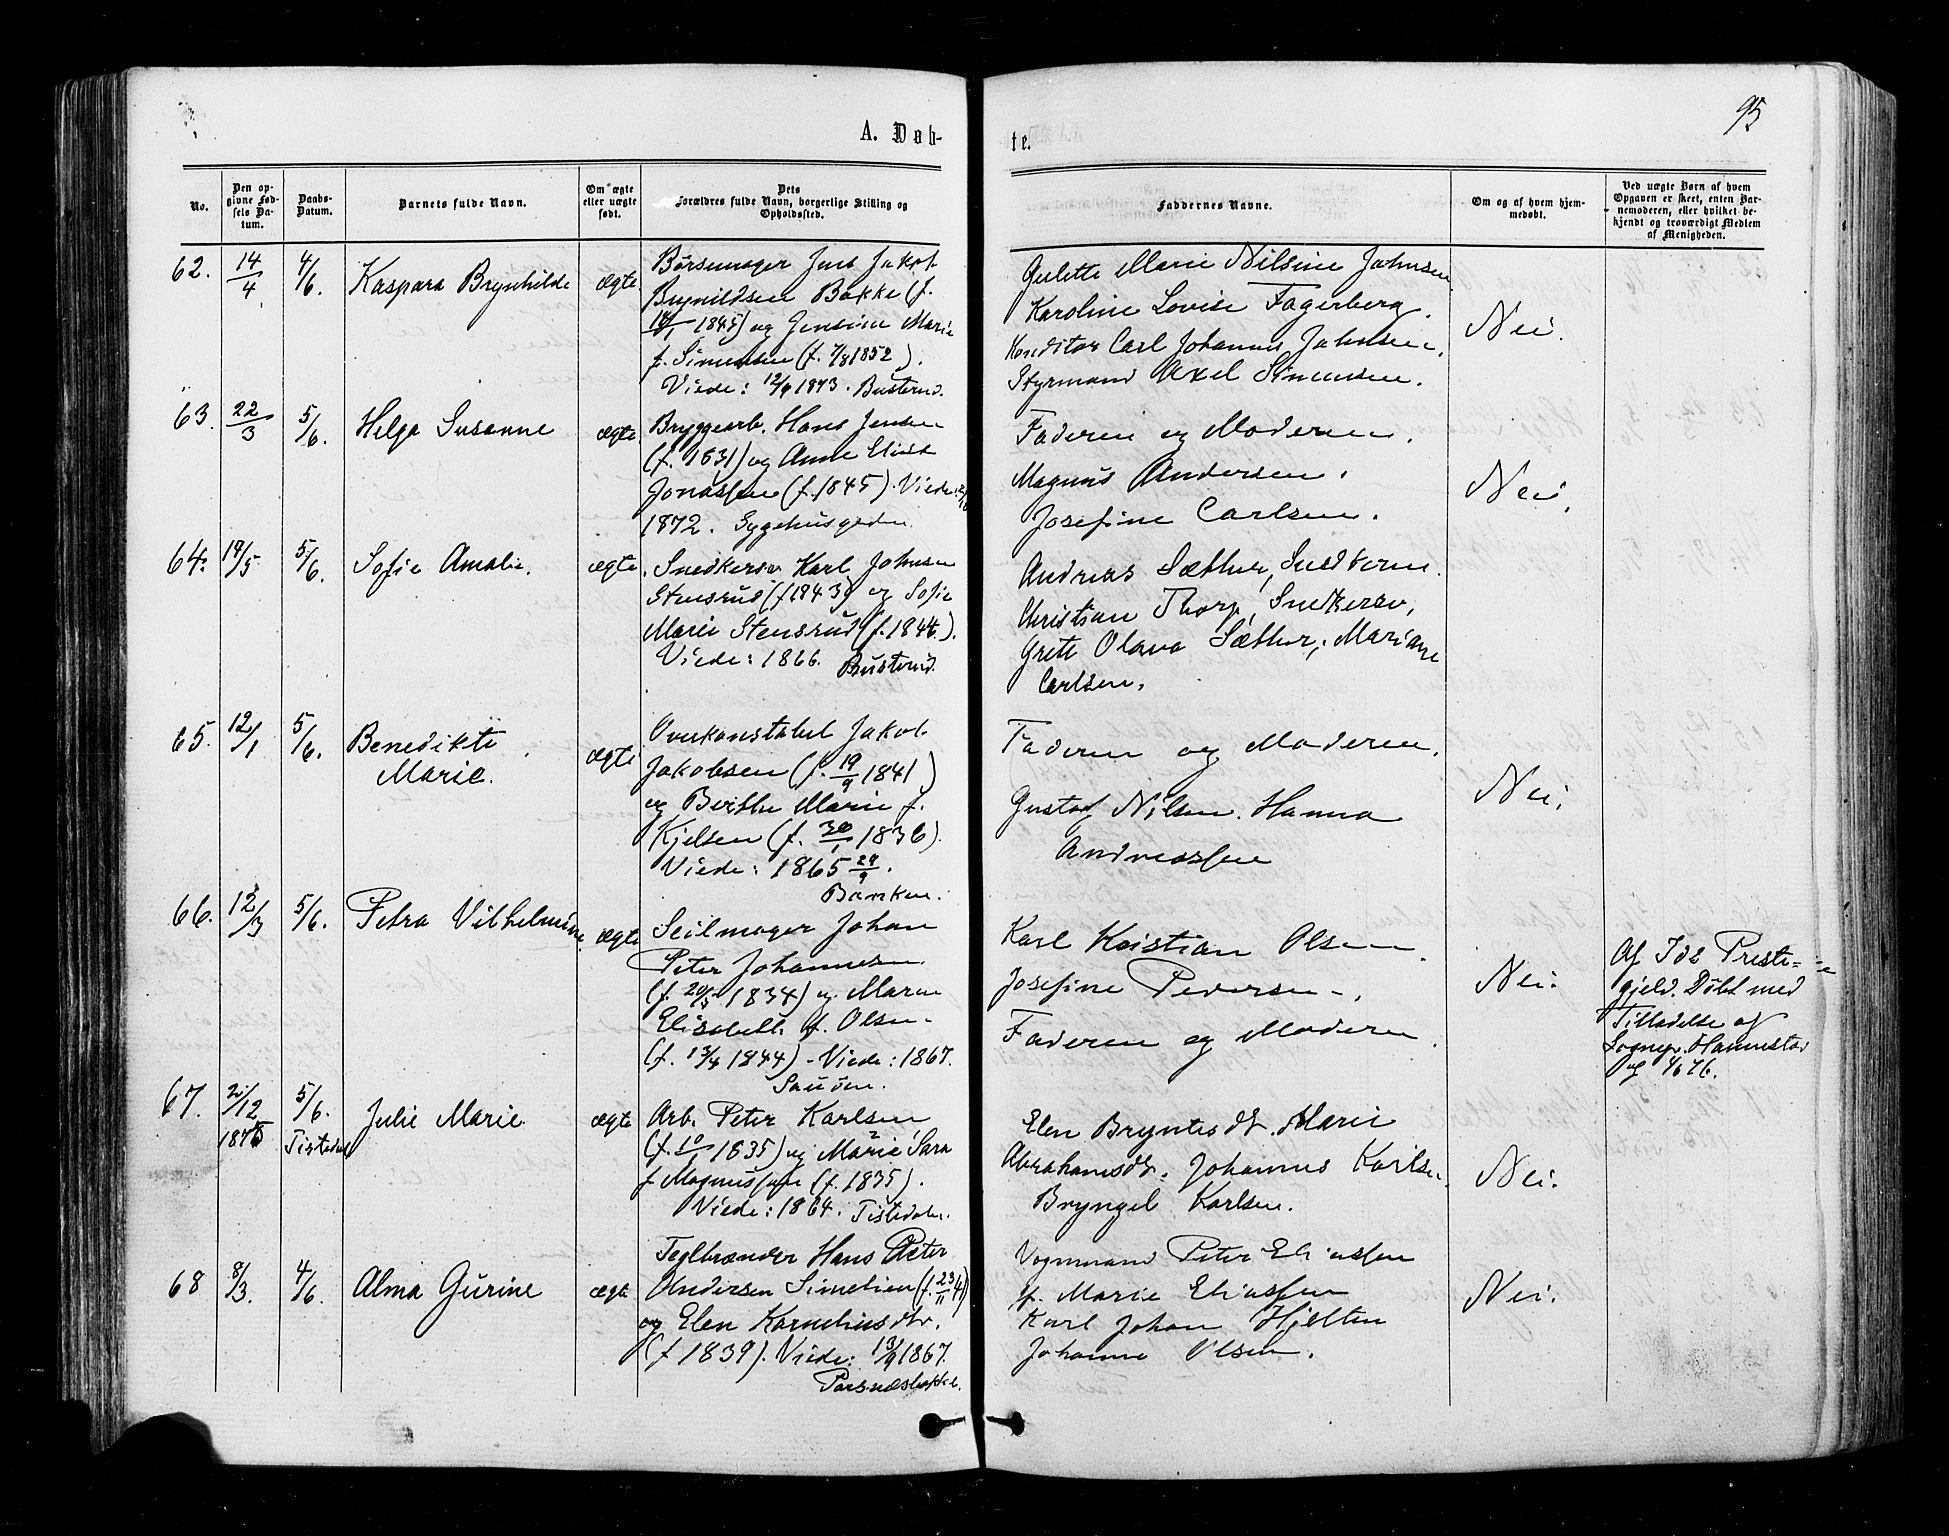 95
A. Døb-
te.
No.
Den op-
givne Fød-
sels Da-
tum.
Daabs-
Datum.
Barnets fulde Navn.
Om ægte
eller uægte
født.
Dets
Forældres fulde Navn, borgerlige Stilling og
Opholdssted.
Faddernes Navne.
Om og af hvem hjem-
medøbt.
Ved uægte Børn af hvem
Opgaven er skeet, enten Bar-
nemoderen, eller hvilket be-
kjendt og troværdigt Medlem
af Menigheden.
62.
14/4
4/6.
Kaspara Brynhilde
ægte
Børsemager Jens Jakob
Brynildsen Bakke (f.
1845) og Jensine Marie
f. Simensen (f. 7/8 1852).
Viede: 12/9 1873. Busterud.
Gulette Marie Nilsine Jahnsen
Karoline Lovise Fagerberg.
Konditor Carl Johannes Jahnsen.
Styrmand Axel Simensen.
Nei.
63.
22/3
5/6.
Helga Susanne
ægte
Bryggearb. Hans Jensen
(f. 1831) og Anne Elise
Jonassen (f. 1845). Viede:
1872. Sygehusgaden.
Faderen og Moderen.
Magnus Andersen.
Josefine Carlsen.
Nei.
64.
19/5
5/6.
Sofie Amalie.
ægte
Snedkersv. Karl Johnsen
Stensrud (f. 1843) og Sofie
Marie Stensrud (f. 1844).
Viede: 1866. Busterud.
Andreas Sæther,
Christian Thorp, Snekkersv,
Grete Olava Sæther, Mariane
Carlsen.
65.
12/1
5/6.
Benedikte
Marie.
ægte
Overkonstabel Jakob
Jakobsen (f. 19/9 1841)
og Berthe Marie f.
Kjelsen (f. 30/1 1836).
Viede: 1865 29/9.
Banken.
Faderen og Moderen.
Gustaf Nilsen. Hanna
Andreassen
Nei.
66.
12/3
5/6.
Petra Vilhelmine
ægte
Seilmager Johan
Peter Johannesen
(f. 20/5 1834) og Maren
Elisabeth f. Olsen
(f. 13/4 1844) - Viede: 1867.
Sauøen.
Karl Kristian Olsen.
Josefine Pedersen.
Faderen og Moderen.
Nei.
Af Ids Preste-
gjeld. Døbt med
Tilladelse af
Sognepr. Hannestad
4/6 76.
67.
2/12
1875
5/6.
Tistedal
Julie Marie.
ægte
Arb. Peter Karlsen
(f. 10/1 1835) og Marie Sara
f. Magnussen (f. 1835).
Viede: 1864. Tistedalen.
Elen Bryntesdt. Marie
Abrahamsdt. Johannes Karlsen.
Bryngel Karlsen.
Nei.
68
8/3.
4/6.
Alma Gurine
ægte
Teglbrænder Hans Peter
Andersen Simelien (f. 23/11 41)
og Elen Korneliusdtr.
(f 1839). Viede: 13/9 1867.
Vognmand Peter Eliassen
f. Marie Eliassen
Karl Johan Hjelten
Johanne Olsen.
Nei.